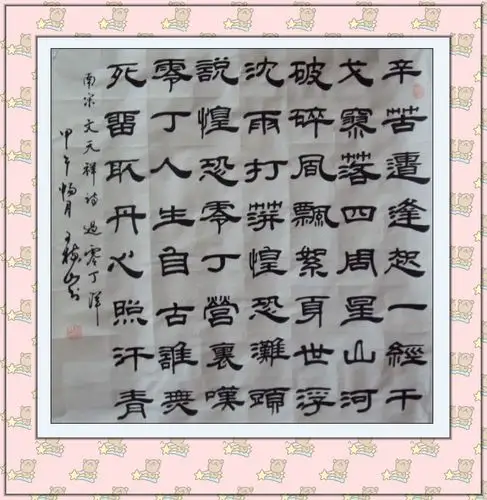 辛苦遭逢起一經干
戈寥落四周星山河
破碎風飄絮身世浮
沈雨打萍惶恐灘頭
說惶恐零丁營裏嘆
零丁人生自古誰無
死留取丹心照汗青
南宋文元祥诗過零丁洋
甲午 月